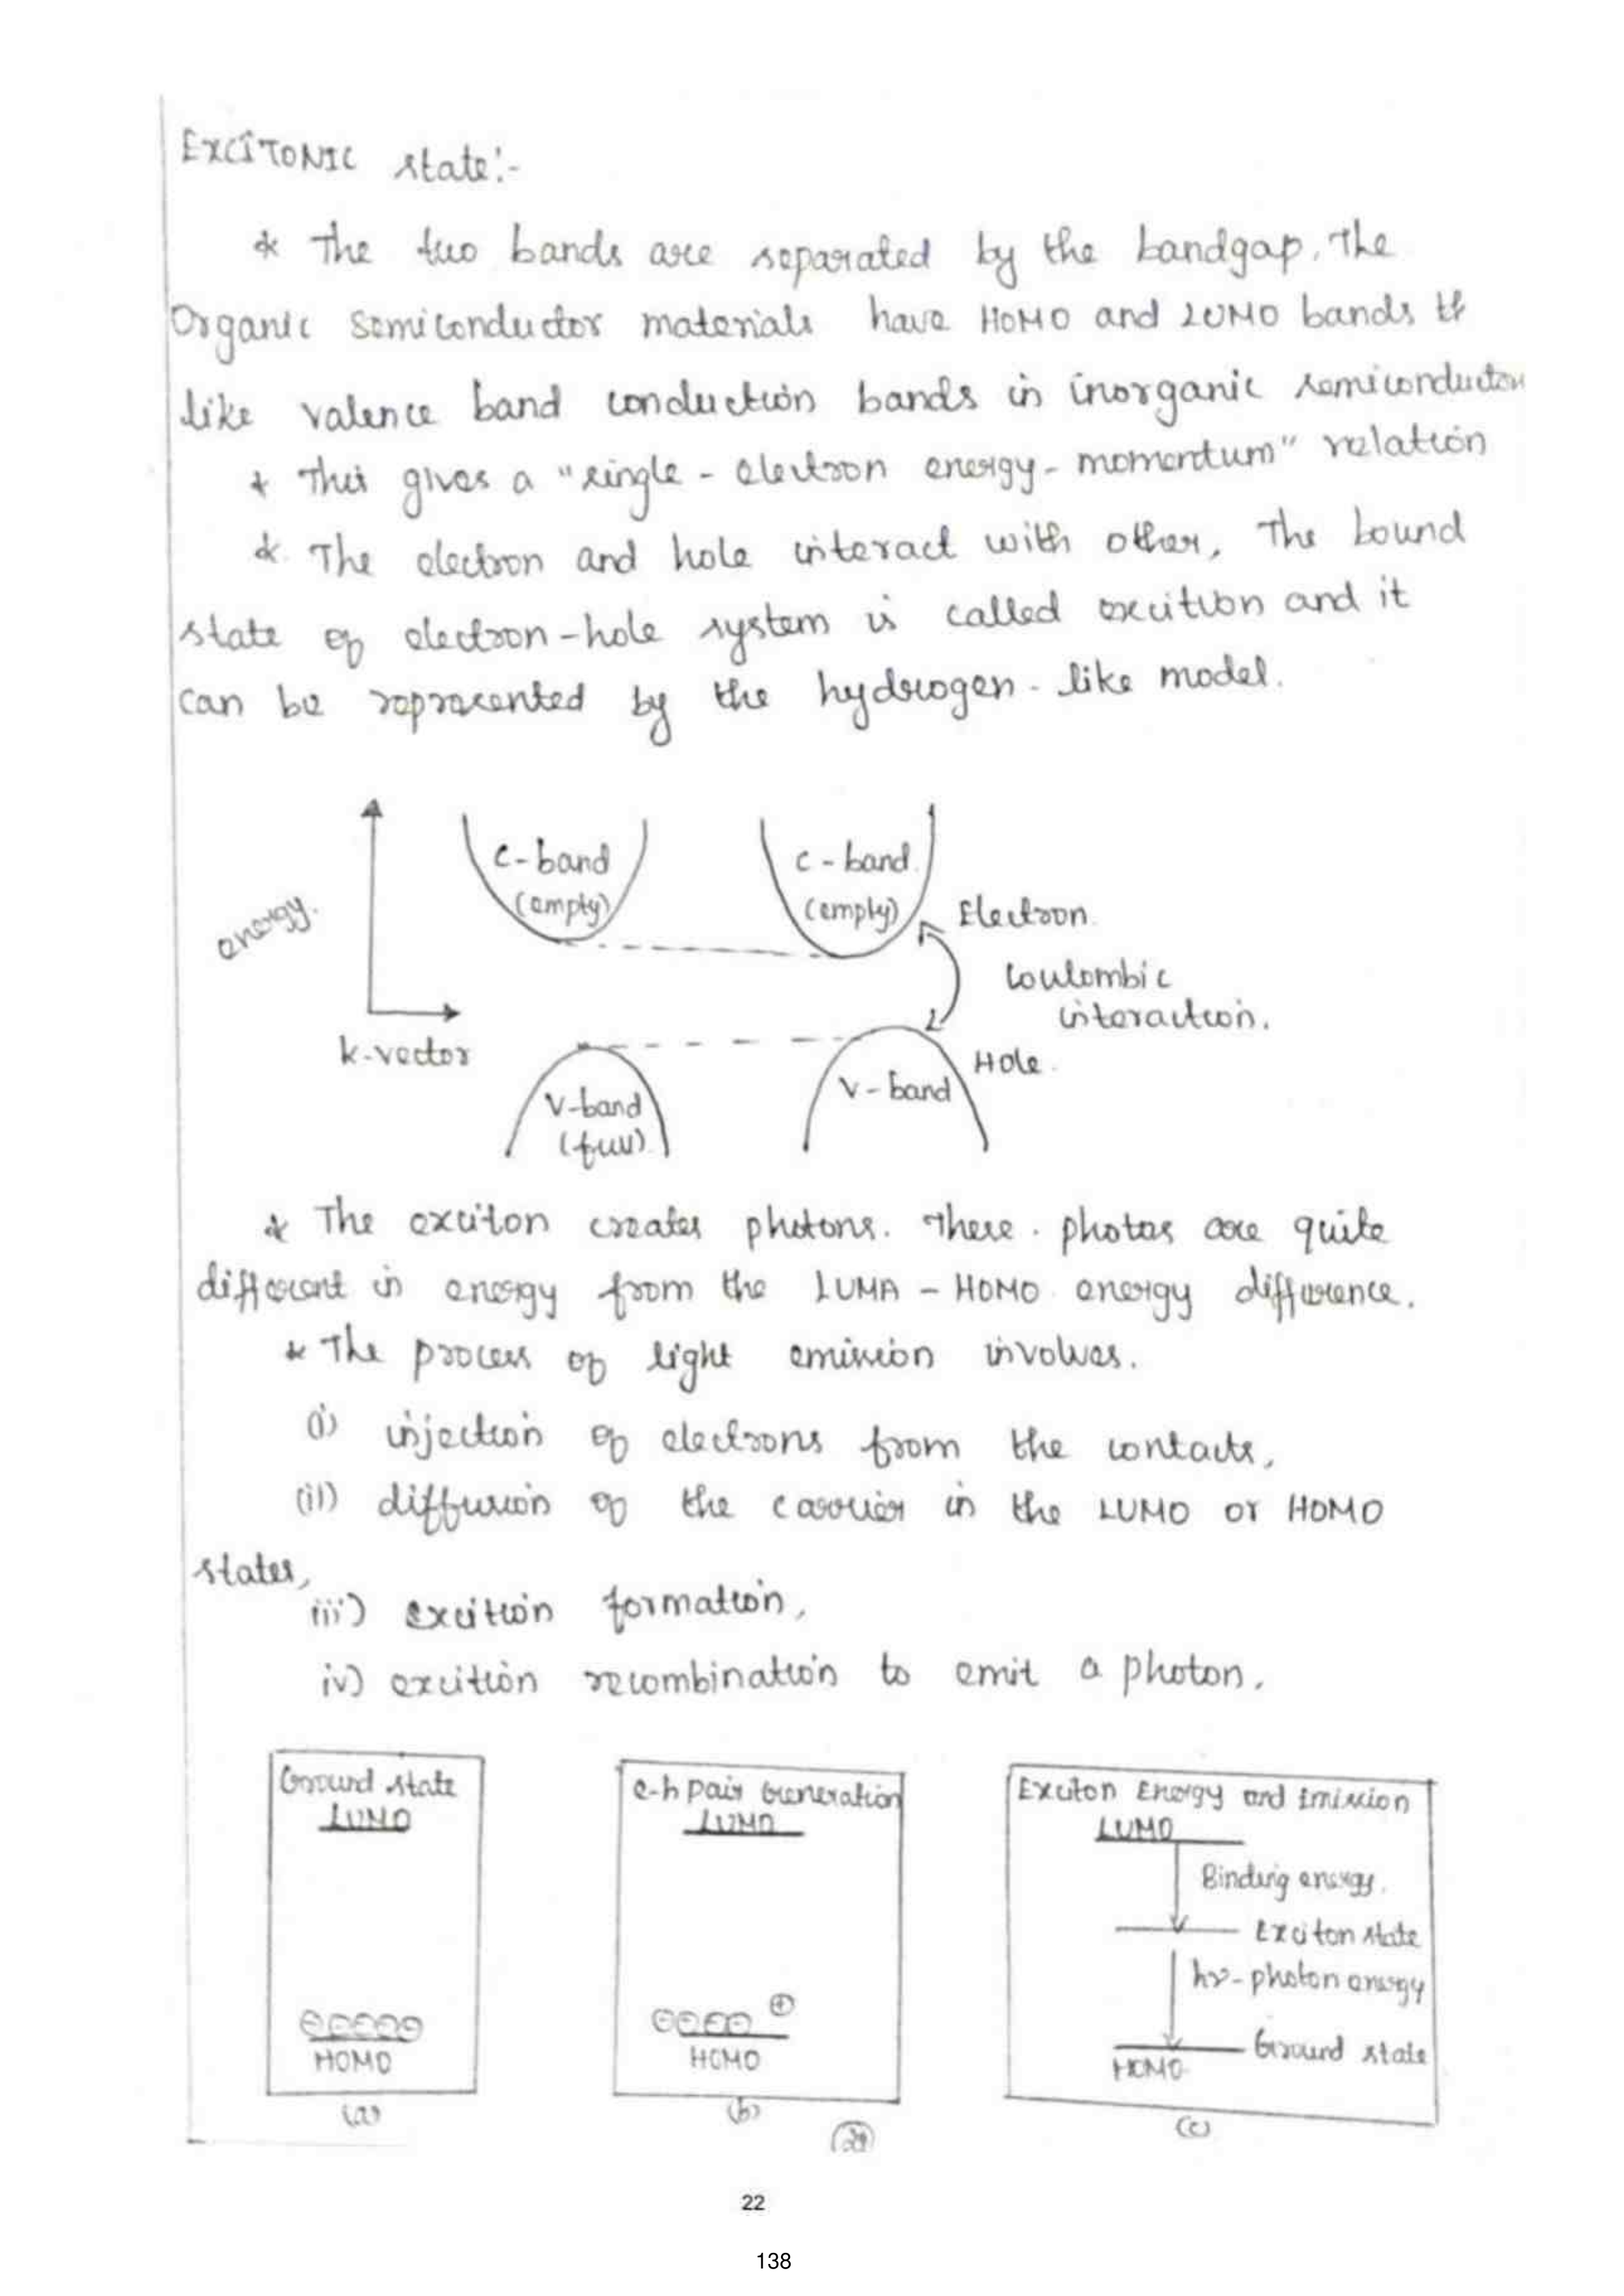 EXCITONIC state:-
* The two bands are separated by the bandgap. The
Organic semiconductor materials have HOMO and LUMO bands
like valence band conduction bands in inorganic semiconductor
* This gives a "single - electron energy - momentum" relation
* The electron and hole interact with other, The bound
state of electron-hole system is called excition and it
can be represented by the hydrogen - like model.
energy.
k-vector
C-band
(empty)
C - band.
(empty)
Electron.
Coulombic
interaction.
Hole.
V-band
(full)
V - band
* The exciton creates photons. There . photos are quite
different in energy from the LUMA - HOMO energy difference.
* The process of light emission involves.
(i) injection of electrons from the contacts,
(ii) diffusion of the carrier in the LUMO or HOMO
states,
iii) excition formation,
iv) excition recombination to emit a photon.
Ground state
LUMO
HOMO
(a)
e-h pair Generation
LUMO
HOMO
(b)
Exciton Energy and Emission
LUMO
Binding energy.
Exciton state
hν - photon energy
Ground state
HOMO
(c)
22
138